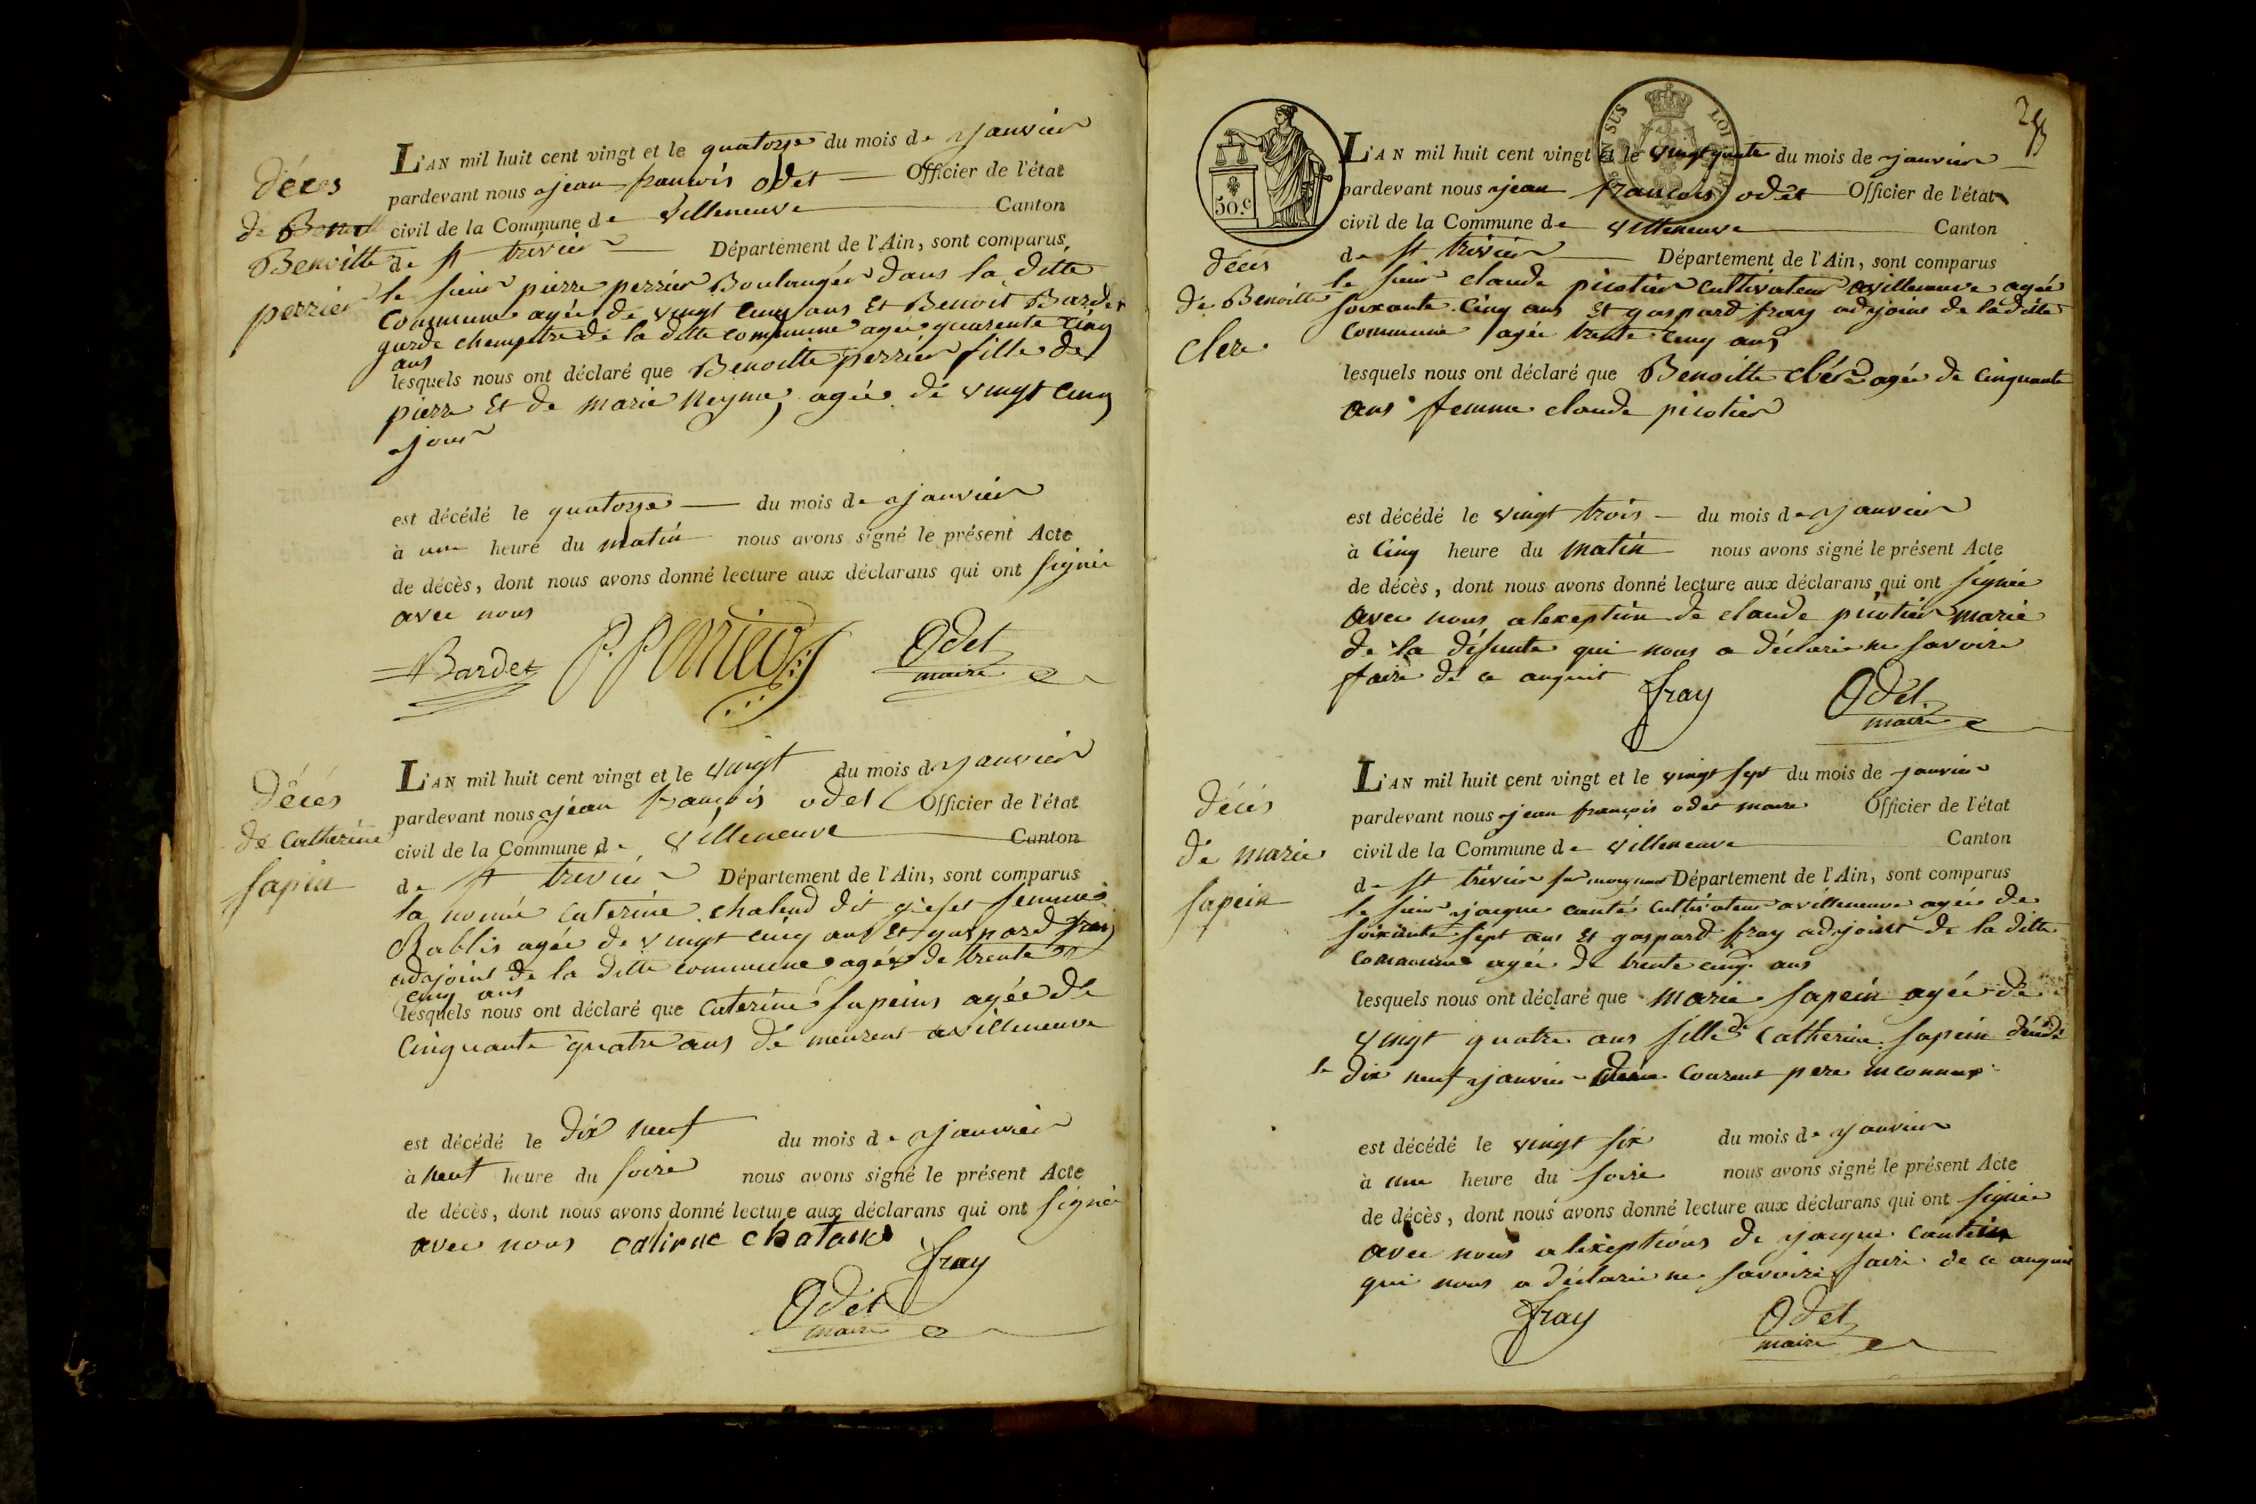 décès
de Benoitte
perrier
L'AN mil huit cent vingt et le quatorze du mois de janvier
pardevant nous jean francois odet Officier de l'état
civil de la Commune de villeneuve Canton
de st trivier Département de l'Ain, sont comparus
le sieur pierre perrier Boulanger dans la ditte
commune agée de vingt cinq ans et Benoit Bardet
garde champetre de la ditte commune agée quarente cinq
ans
lesquels nous ont déclaré que Benoitte perrier fille de
pierre et de marie Neyme agée de vingt cinq
jour
est décédé le quatorze du mois de janvier
à une heure du matin nous avons signé le présent Acte
de décès, dont nous avons donné lecture aux déclarans qui ont signée
avec nous
Bardet P. Perrier Odet
maire
décés
de Catherine
sapin
L'AN mil huit cent vingt et le vingt du mois de janvier
pardevant nous jéan françois odet Officier de l'état
civil de la Commune de villeneuve Canton
de st trivier Département de l'Ain, sont comparus
la nomée caterine chaland dit femme
Bablis agée de vingt cinq ans et gaspard fray
adajoint de la ditte commune agée de trente
cinq ans
lesquels nous ont déclaré que caterine sapeins agée de
cinquante quatre ans de meurent a villeneuve
est décédé le dix neuf du mois de janvier
à neuf heure du soire nous avons signé le présent Acte
de décès, dont nous avons donné lecture aux déclarans qui ont signée
avec nous
fray
Odet
maire
50.c
LOI DE
décés
de Benoitte
clere
L'AN mil huit cent vingt et le vingt quatre du mois de janvier
pardevant nous jean francois odet Officier de l'état
civil de la Commune de villeneuve Canton
de st trivier Département de l'Ain, sont comparus
le sieur claude picotier cultivateur a villeneuve agée
soixante cinq ans et gaspard fray adajoint de la ditte
commune agée trente cinq ans
lesquels nous ont déclaré que Benoitte clére agée de cinquante
ans femme claude picotier
est décédé le vingt trois du mois de janvier
à cinq heure du matin nous avons signé le présent Acte
de décès, dont nous avons donné lecture aux déclarans qui ont signée
avec nous alexeption de claude picotier marie
de la défunte qui nous a déclarée ne savoire
faire de ce anquit
fray Odet
maire
décés
de marie
sapein
L'AN mil huit cent vingt et le vingt sept du mois de janvier
pardevant nous jean françois odet maire Officier de l'état
civil de la Commune de villeneuve Canton
de st trivier sur moignans Département de l'Ain, sont comparus
le sieur jacque canté cultivateur a villeneuve agée de
soixante sept ans et gaspard fray adajoint de la ditte
commune agée de trente cinq ans
lesquels nous ont déclaré que marie sapein agée de
vingt quatre ans fille de Catherine sapein décédé
le dix neuf janvier courent pere inconnux
est décédé le vingt six du mois de janvier
à une heure du soire nous avons signé le présent Acte
de décès, dont nous avons donné lecture aux déclarans qui ont signée
avec nous alexeptions de jacque
qui nous a déclarée ne savoire faire de ce anquit
fray Odet
maire